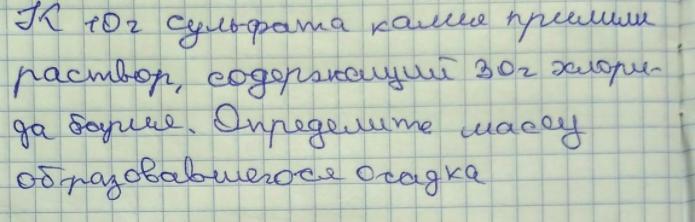 К 10г сульфата калия прилили
раствор, содержащий 30г хлори-
да бария. Определите массу
образовавшегося осадка